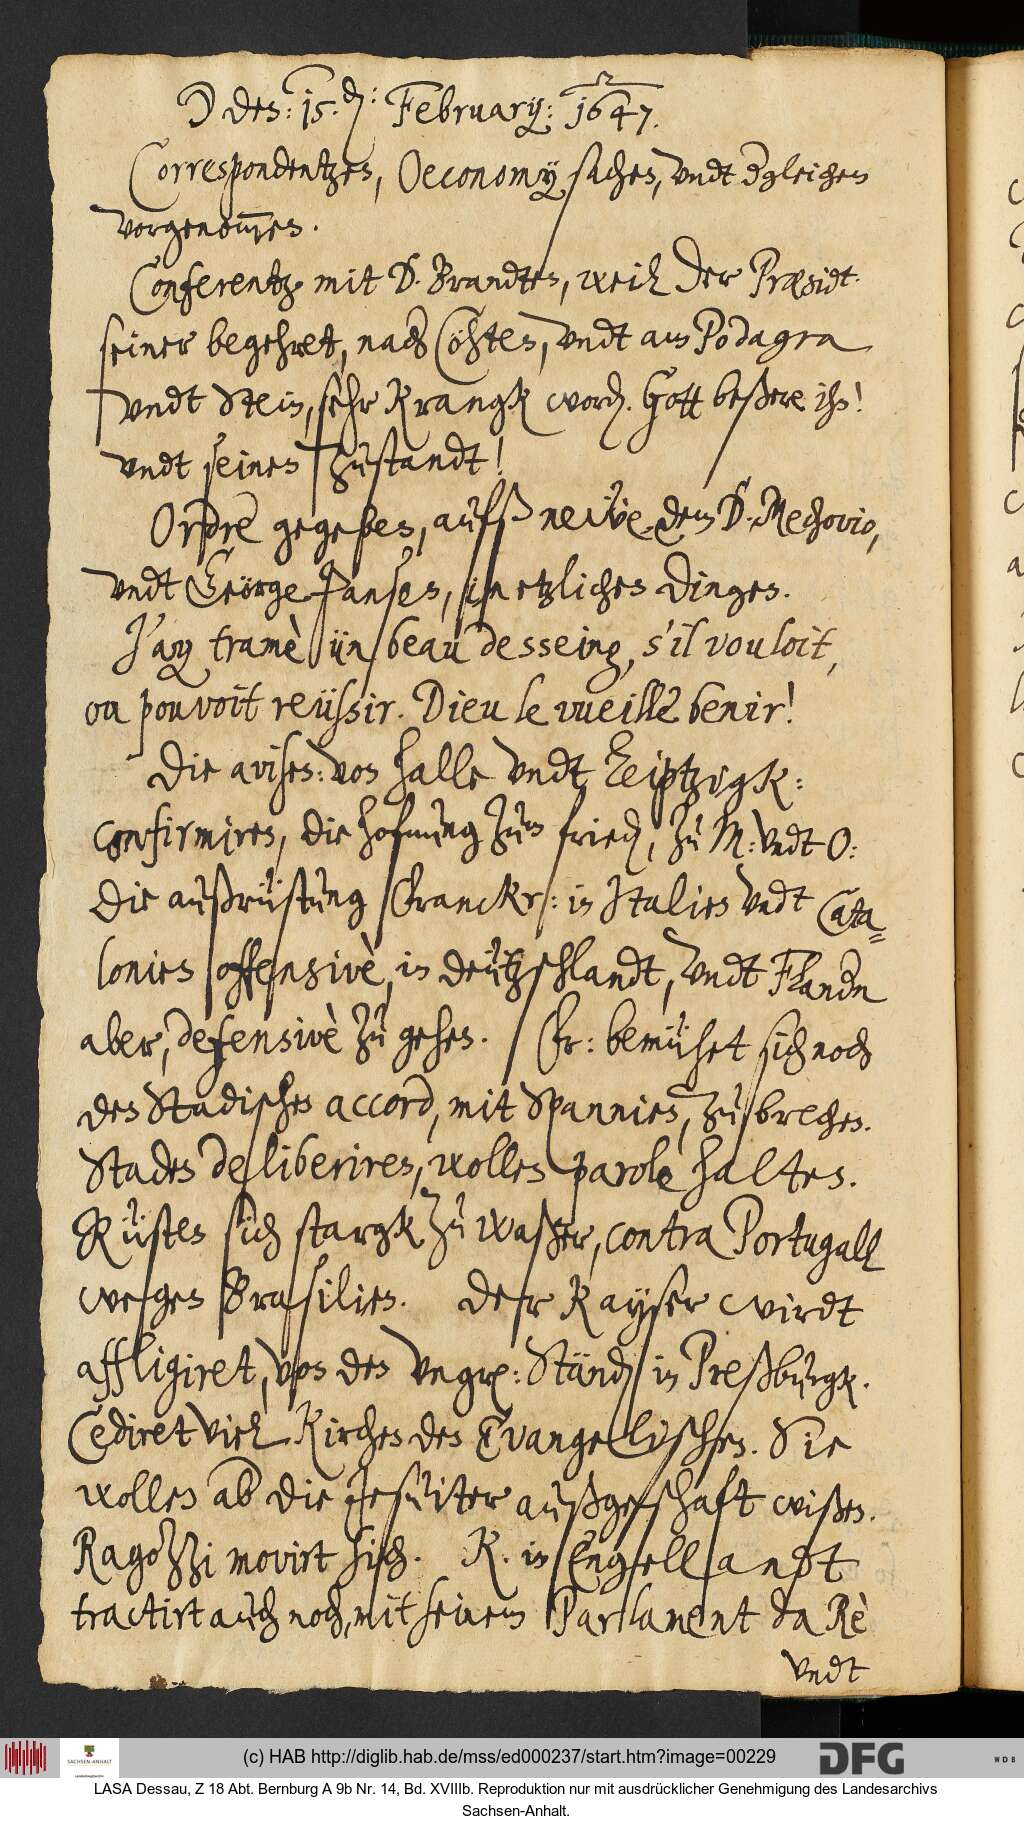 ☽ den: 15. d: February: 1647.
Correspondentzen, Oeconomy sachen, vndt dergleichen
vorgenom̅en.
Conferentz mit D. Brandten, weil der Præsidt.
seiner begehret, nach Cöhten, vndt am Podagra
vndt Stein, sehr Krangk word. Gott beßere ihn!
vndt seinen zustandt!
Ordre gegeben, aufß neẅe dem D. Mechovio,
vndt Geörge Jansen, in etzlichen dingen.
J'ay tramè ün beau desseing, s'il vouloit,
ou pouvoit reüssir. Dieu le vueille benir!
Die avisen: von Halle vndt Leiptzigk:
confirmiren, die hofnung zum fried, zu M: vndt O:
Die außrüstung Franckr: in Italien vndt Cata=
lonien offensivè, in deützschlandt, vndt Flandn
aber, defensivè zu gehen. Fr: bemühet sich noch
den Stadischen accord, mit Spannien, zu brechen.
Staden deliberiren, wollen parole halten.
Rüsten sich stargk zu waßer, contra Portugall
wegen Brasilien. Der Kayser wirdt
affligiret, von den vngr: Ständ in Preßburgk.
Cediret viel Kirchen den Evangelischen. Sie
wollen ab die Jesuiter außgeschaft wißen.
Ragozzi movirt sich. K. in Engellandt
tractirt auch noch, mit seinem Parlament da Rè
vndt
(c) HAB http://diglib.hab.de/mss/ed000237/start.htm?image=00229
SACHSEN-ANHALT
Landeshauptarchiv
DFG
WDB
LASA Dessau, Z 18 Abt. Bernburg A 9b Nr. 14, Bd. XVIIIb. Reproduktion nur mit ausdrücklicher Genehmigung des Landesarchivs
Sachsen-Anhalt.